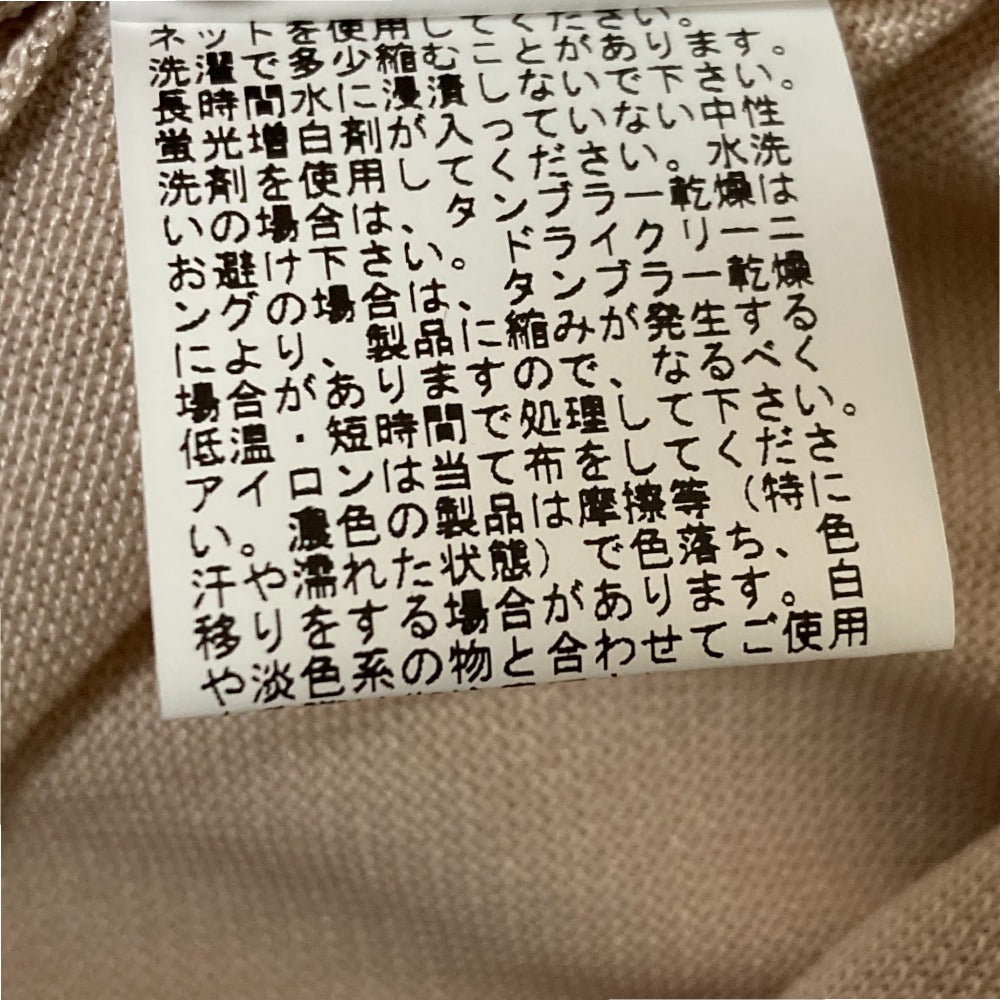 ネットを使用してください。
洗濯で多少縮むことがあります。
長時間水に浸漬しないで下さい。
蛍光増白剤が入っていない中性
洗剤を使用してください。水洗
いの場合は、タンブラー乾燥は
お避け下さい。ドライクリーニ
ングの場合は、タンブラー乾燥
により、製品に縮みが発生する
場合がありますので、なるべく
低温・短時間で処理して下さい。
アイロンは当て布をしてくださ
い。濃色の製品は摩擦等（特に
汗や濡れた状態）で色落ち、色
移りをする場合があります。白
や淡色系の物と合わせてご使用